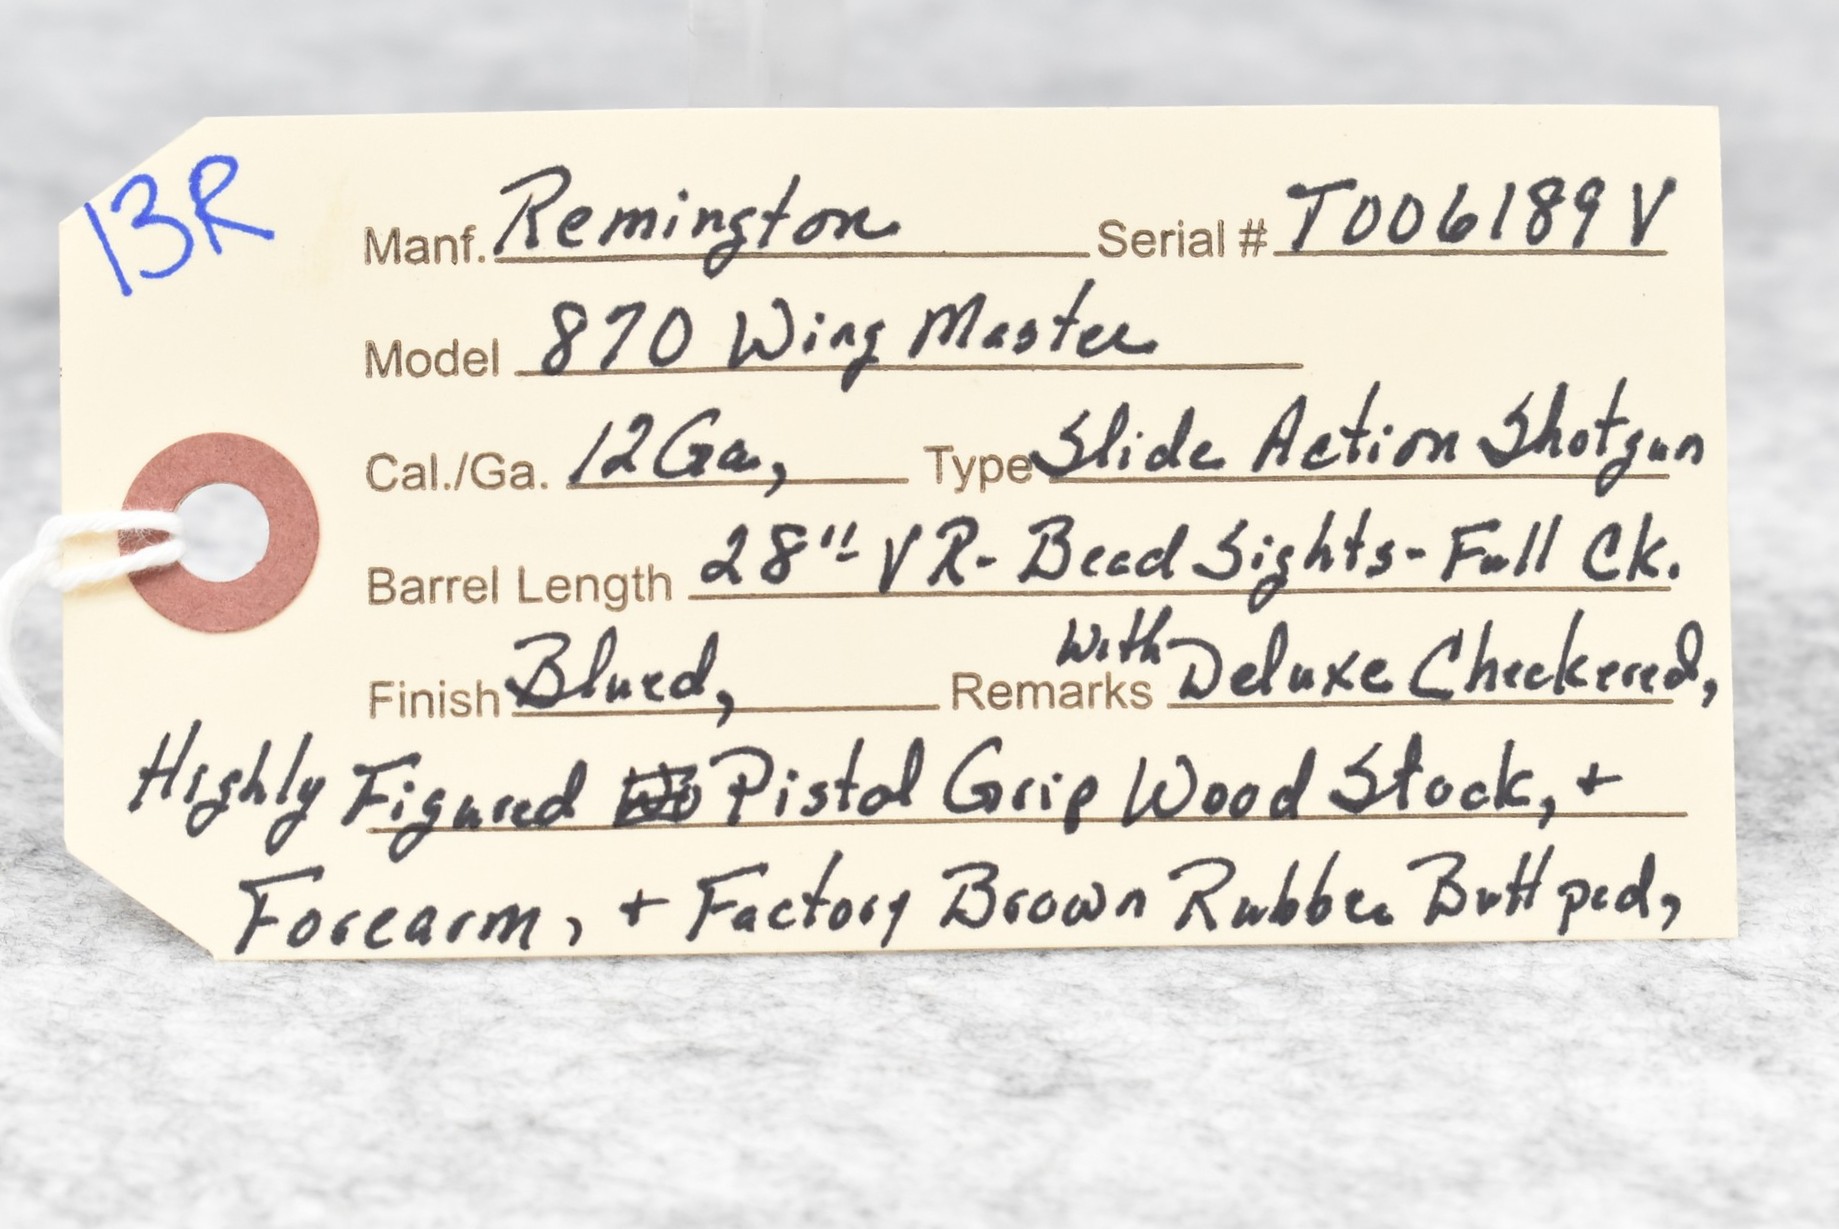 13R
Manf. Remington Serial # T006189V
Model 870 Wing Master
Cal./Ga. 12 Ga, Type Slide Action Shotgun
Barrel Length 28" VR- Bead Sights- Full Ck.
Finish Blued, Remarks with Deluxe Checkered,
Highly Figured Pistol Grip Wood Stock, +
Forearm, + Factory Brown Rubber Butt pad,